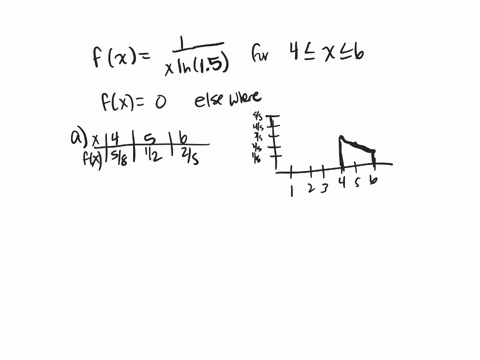 f(x) = 1/(x ln(1.5)) for 4 ≤ x ≤ 6
f(x) = 0 else where
a) x | 4 | 5 | 6
f(x) | 5/8 | 1/2 | 2/5
5/5
4/5
3/5
2/5
1/5
1 2 3 4 5 6